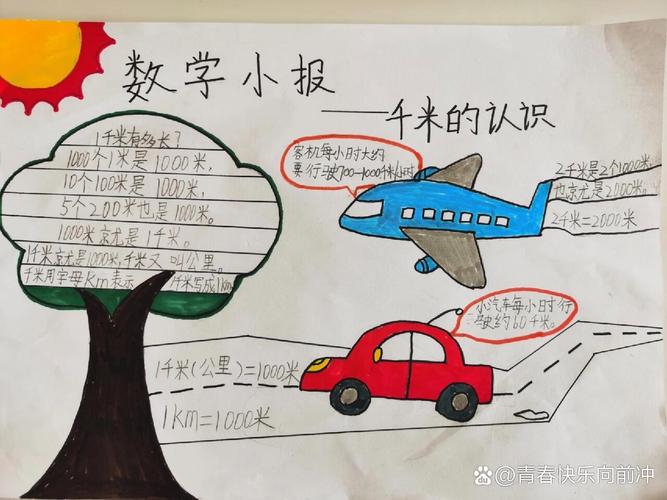 数学小报
——千米的认识
1千米有多长？
1000个1米是1000米，
10个100米是1000米，
5个200米也是1000米。
1000米就是1千米。
1千米就是1000米，千米又叫公里。
千米用字母Km表示
1千米写成1km
客机每小时大约
要行驶700-1000千米/小时
2千米是2个1000米
也就是2000米。
2千米=2000米
小汽车每小时行
驶约60千米。
1千米(公里)=1000米
1KM=1000米
@青春快乐向前冲